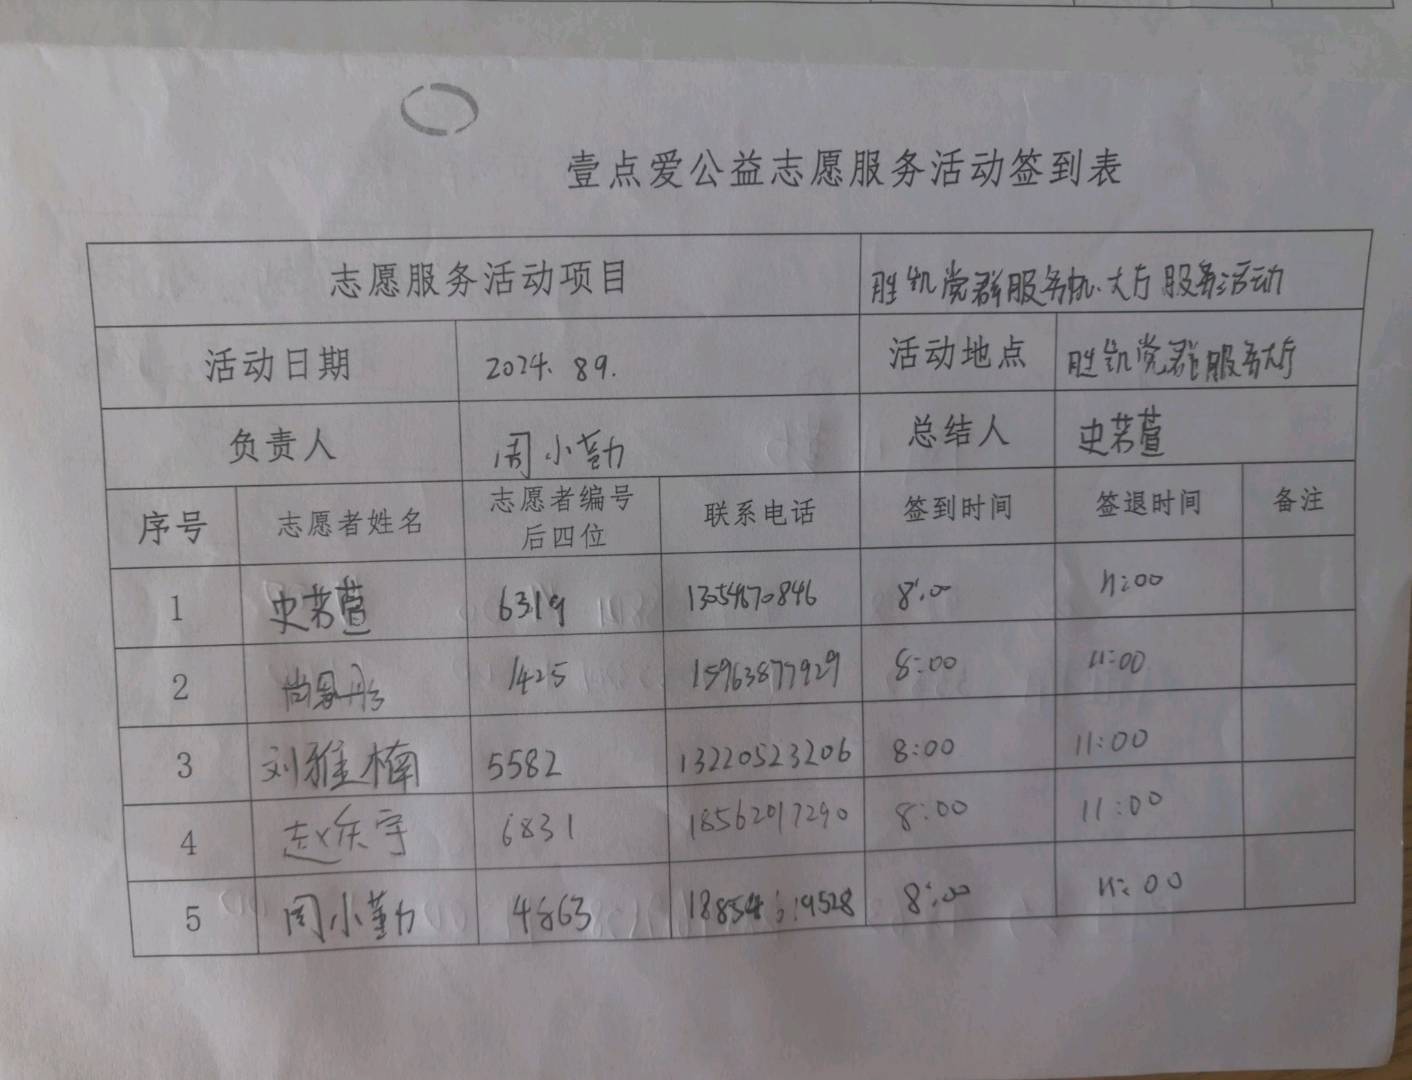 壹点爱公益志愿服务活动签到表
志愿服务活动项目 胜凯党群服务 大厅服务活动
活动日期 2024. 89. 活动地点 胜凯党群服务大厅
负责人 周小勤 总结人 史若萱
序号 志愿者姓名 志愿者编号 联系电话 签到时间 签退时间 备注
后四位
1 史若萱 6319 8:00 11:00
2 1425 15963877929 8:00 11:00
3 刘雅楠 5582 13220523206 8:00 11:00
4 赵庆宇 6831 18562017290 8:00 11:00
5 周小勤 4863 8:00 11:00